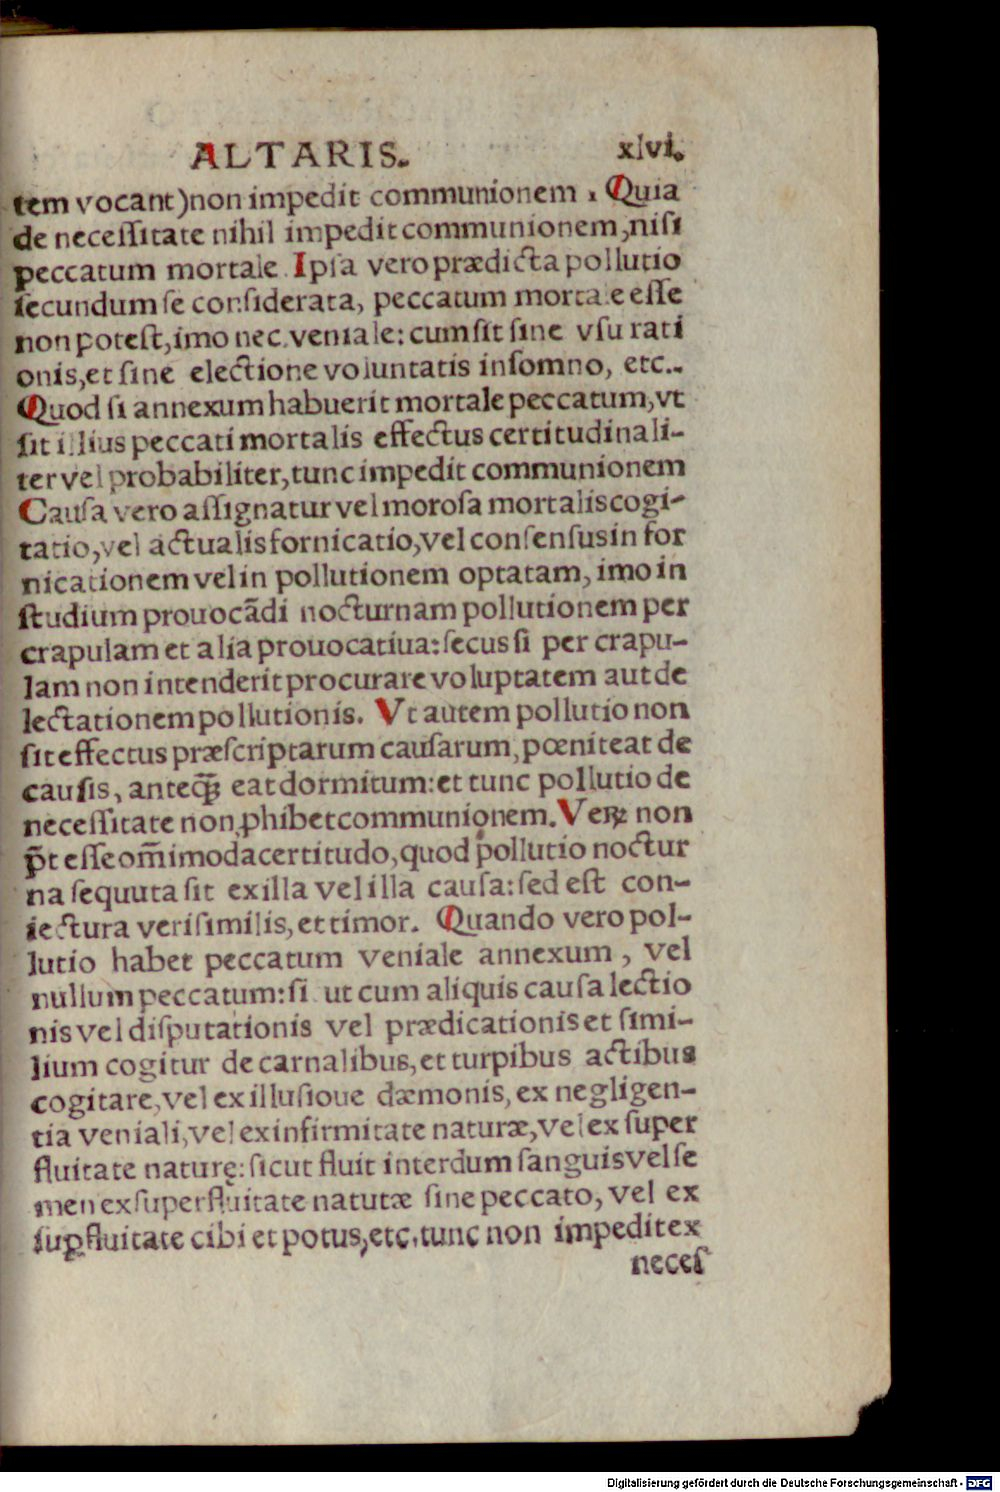 ALTARIS. xlvi.
tem vocant)non impedit communionem . Quia
de neceſſitate nihil impedit communionem,niſi
peccatum mortale. Ipſa vero prædicta pollutio
ſecundum ſe conſiderata, peccatum mortale eſſe
non poteſt,imo nec veniale: cum ſit ſine vſu rati
onis,et ſine electione voluntatis in ſomno, etc..
Quod ſi annexum habuerit mortale peccatum,vt
ſit illius peccati mortalis effectus certitudinali-
ter vel probabiliter,tunc impedit communionem
Cauſa vero aſſignatur vel moroſa mortalis cogi-
tatio,vel actualis fornicatio,vel conſenſus in for
nicationem vel in pollutionem optatam, imo in
ſtudium prouocādi nocturnam pollutionem per
crapulam et alia prouocatiua: ſecus ſi per crapu-
lam non intenderit procurare voluptatem aut de
lectationem pollutionis. Vt autem pollutio non
ſit effectus præſcriptarum cauſarum, pœniteat de
cauſis, anteq̃ꝫ eat dormitum: et tunc pollutio de
neceſſitate non ꝓhibet communionem. Veꝝ non
p̄t eſſe om̄imoda certitudo, quod pollutio noctur
na ſequuta ſit ex illa vel illa cauſa: ſed eſt con-
iectura veriſimilis, et timor. Quando vero pol-
lutio habet peccatum veniale annexum, vel
nullum peccatum: ſi ut cum aliquis cauſa lectio
nis vel diſputationis vel prædicationis et ſimi-
lium cogitur de carnalibus, et turpibus actibus
cogitare, vel ex illuſioue dæmonis, ex negligen-
tia veniali, vel ex infirmitate naturæ, vel ex ſuper
fluitate naturę: ſicut fluit interdum ſanguis vel ſe
men ex ſuperfluitate natutæ ſine peccato, vel ex
ſuꝑfluitate cibi et potus, etc. tunc non impedit ex
neceſ
Digitalisierung gefördert durch die Deutsche Forschungsgemeinschaft - DFG